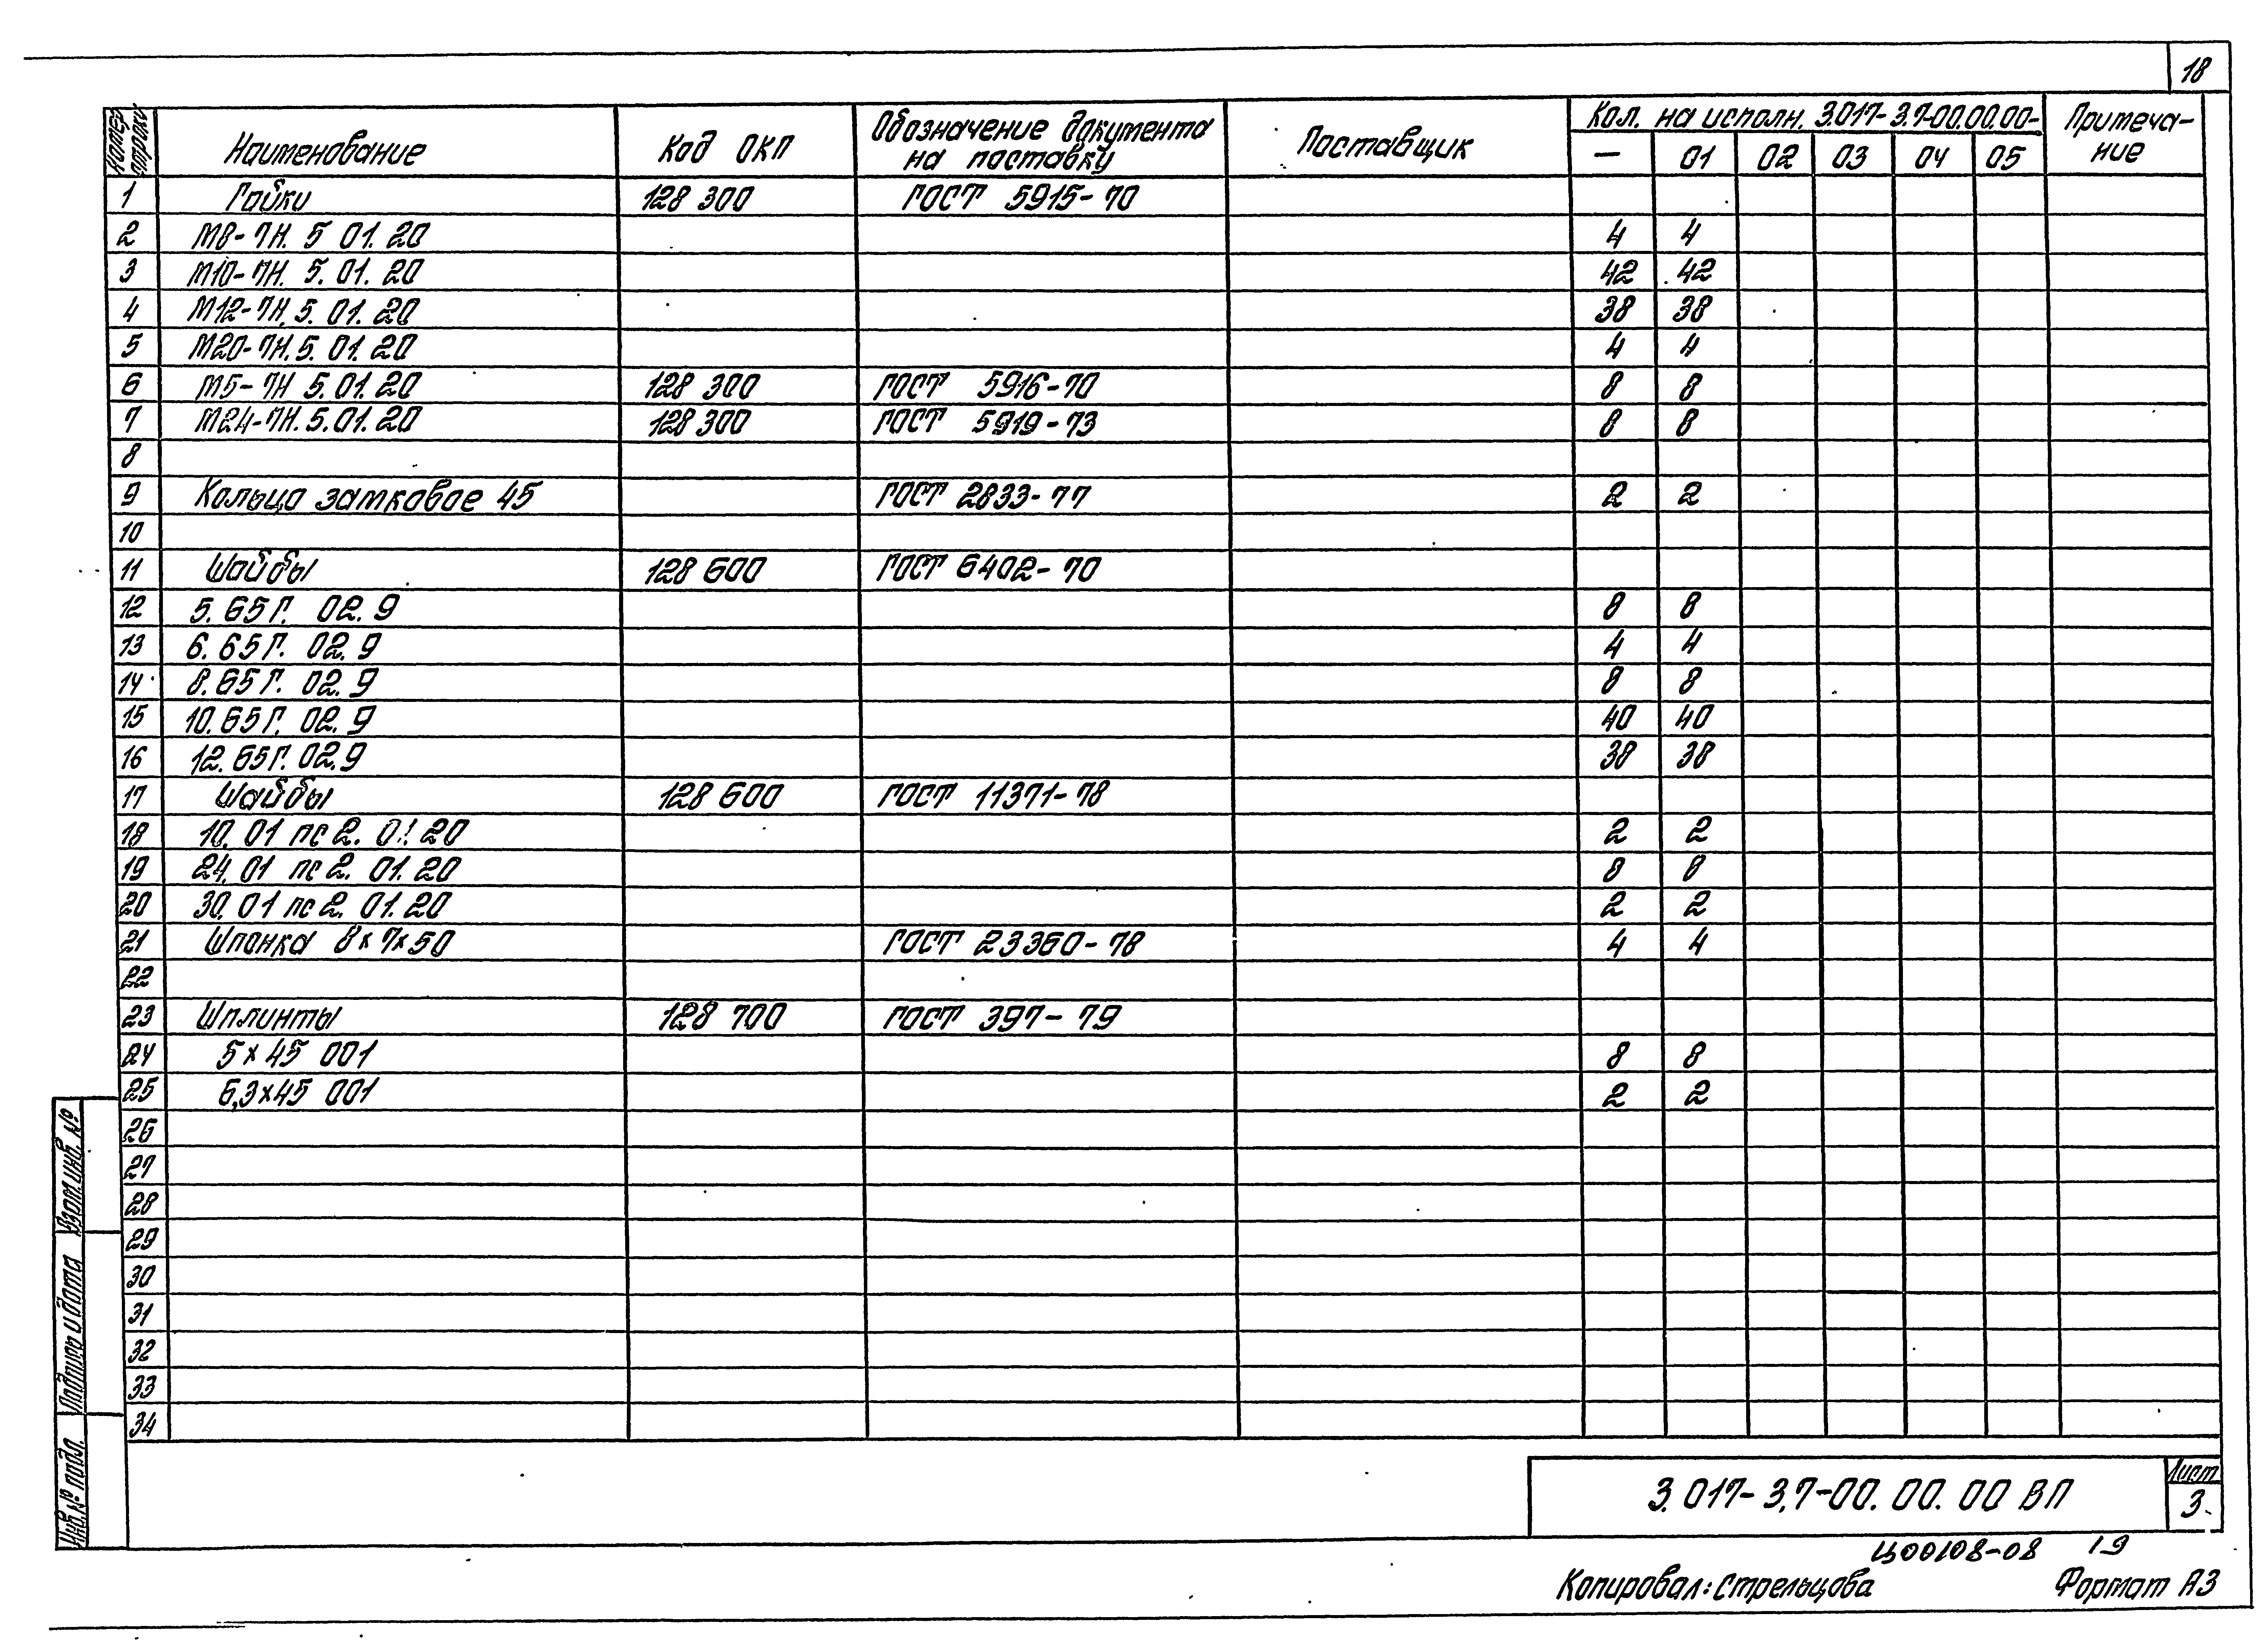 18
Номер строки Наименование Код ОКП Обозначение документа на поставку Поставщик Кол. на исполн. 3.017-3.7-00.00.00- Примечание
— 01 02 03 04 05
1 Гайки 128 300 ГОСТ 5915-70
2 М8-7Н. 5 01. 20 4 4
3 М10-7Н. 5. 01. 20 42 42
4 М12-7Н. 5. 01. 20 38 38
5 М20-7Н. 5. 01. 20 4 4
6 М5-7Н 5. 01. 20 128 300 ГОСТ 5916-70 8 8
7 М24-7Н. 5. 01. 20 128 300 ГОСТ 5919-73 8 8
8
9 Кольцо затковое 45 ГОСТ 2833-77 2 2
10
11 Шайбы 128 600 ГОСТ 6402-70
12 5. 65Г. 02. 9 8 8
13 6. 65Г. 02. 9 4 4
14 8. 65Г. 02. 9 8 8
15 10. 65Г. 02. 9 40 40
16 12. 65Г. 02. 9 38 38
17 Шайбы 128 600 ГОСТ 11371-78
18 10. 01 пс 2. 01. 20 2 2
19 24. 01 пс 2. 01. 20 8 8
20 30. 01 пс 2. 01. 20 2 2
21 Шпонка 8х7х50 ГОСТ 23360-78 4 4
22
23 Шплинты 128 700 ГОСТ 397-79
24 5х45 001 8 8
25 6,3х45 001 2 2
26
27
28
29
30
31
32
33
34
Взам. инв. №
Подпись и дата
Инв. № подл.
3.017-3.7-00.00.00 ВП
Лист
3
Ц00108-08 19
Копировал: Стрельцова Формат А3